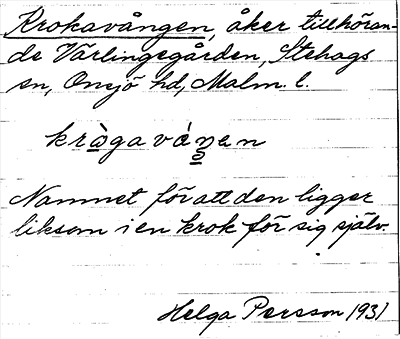 Krokavången, åker tillhöran-
de Värlingegården, Stehags
sn, Onsjö hd, Malm. l.
kràgaváŋen
Namnet för att den ligger
liksom i en krok för sig själv.
Helga Persson 1931